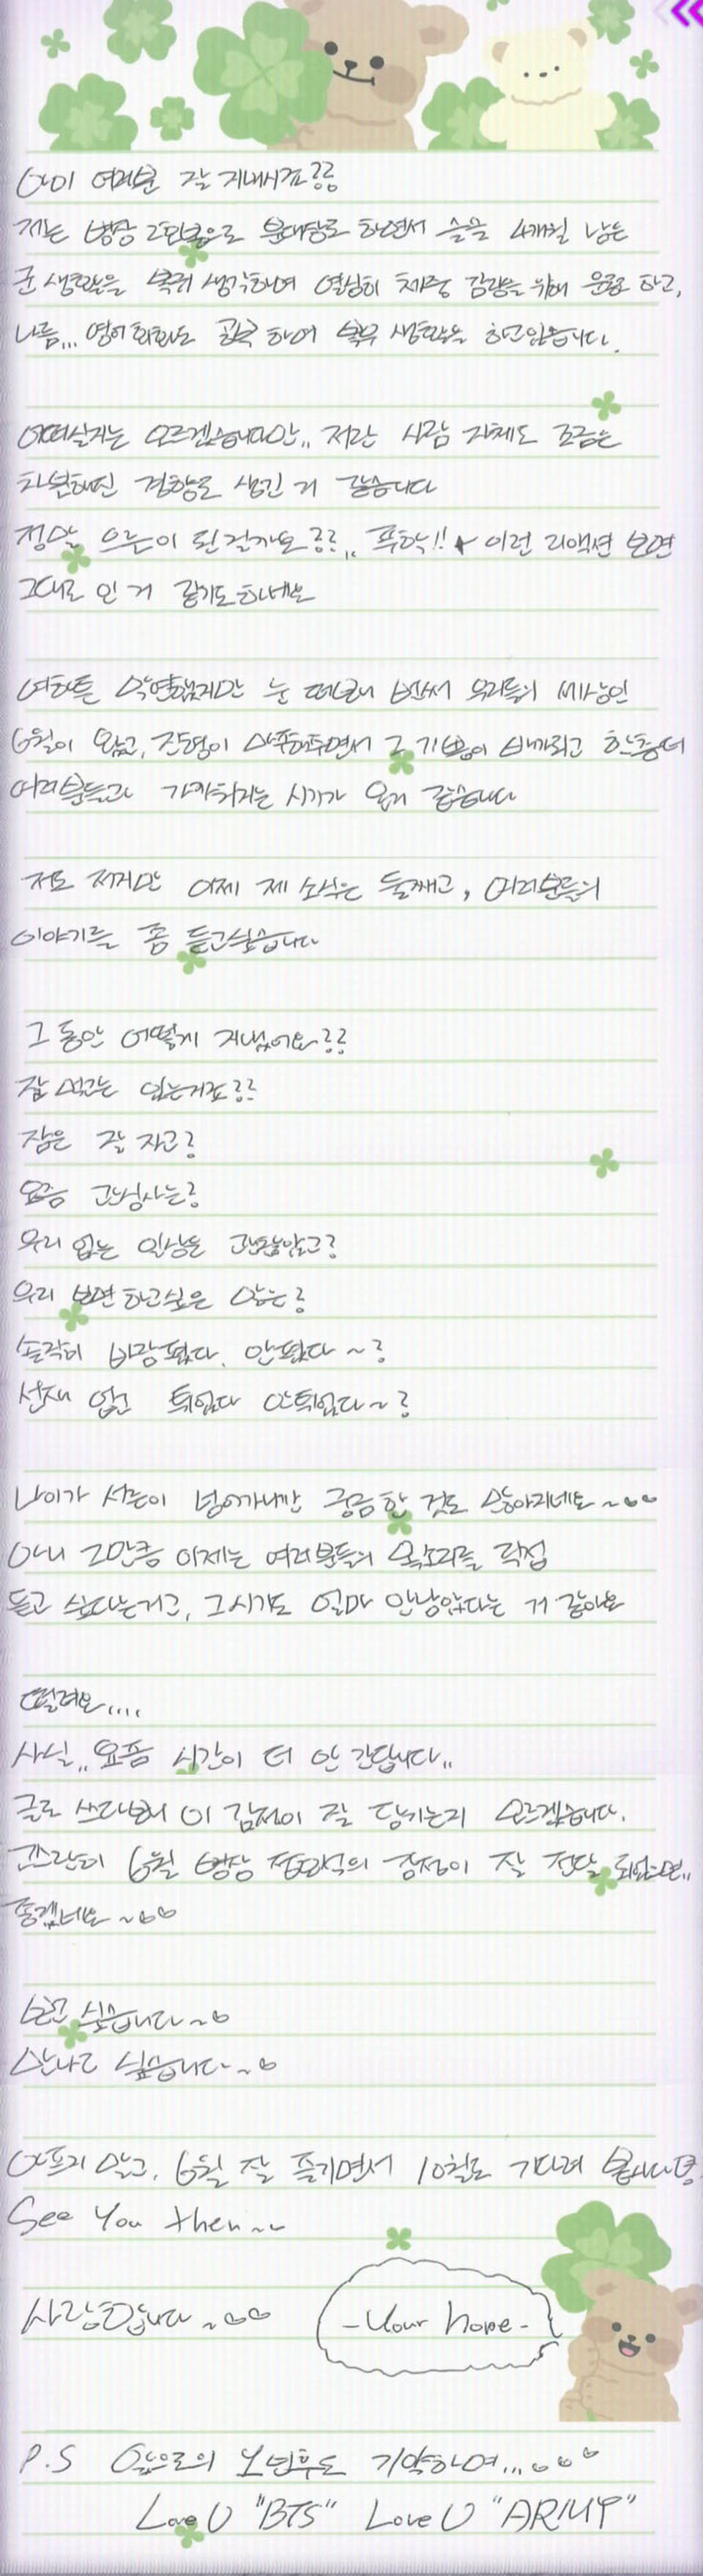 아미 여러분 잘 지내시죠??
저는 병장 2단봉으로 분대장도 하면서 슬슬 4개월 남은
군 생활을 복귀 생각하며 열심히 체중 감량을 위해 운동 하고,
나름... 영어회화도 공부 하며 복무 생활을 하고있습니다.
어떠실지는 모르겠습니다만.. 저란 사람 자체도 조금은
차분해진 경향도 생긴 거 같습니다
정말 으른이 된걸까요??.. 푸핫!! 이런 리액션 보면
그대로 인 거 같기도하네요
여하튼 막연했지만 눈 떠보니 벌써 우리들의 세상인
6월이 왔고, 진형이 스타트해주면서 그 기분이 바뀌고 한층더
여러분들과 가까워지는 시기가 온거 같습니다
저도 저지만 이제 제 소식은 둘째고, 여러분들의
이야기를 좀 듣고싶습니다
그 동안 어떻게 지냈어요??
잘 먹고는 있는거죠??
잠은 잘 자고?
요즘 관심사는?
우리 없는 일상은 괜찮았고?
우리 보면 하고싶은 말은?
솔직히 바람폈다. 안폈다~?
선재 업고 튀었다 안튀었다~?
나이가 서른이 넘어가니깐 궁금한 것도 많아지네요~
아니 그만큼 이제는 여러분들의 목소리를 직접
듣고 싶다는거고, 그시기도 얼마 안남았다는 거 같아요
떨려요....
사실.. 요즘 시간이 더 안 간답니다..
글로 쓰다보니 이 감정이 잘 담기는지 모르겠습니다.
고스란히 6월 병장 정호석의 감정이 잘 전달 되었으면..
좋겠네요~
보고 싶습니다~
만나고 싶습니다~
아프지 말고, 6월 잘 즐기면서 10월도 기다려 봅시다용
See You then~
사랑합니다~
-Your hope-
P.S 앞으로의 보넌후도 기약하며...
Love U "BTS" Love U "ARMY"